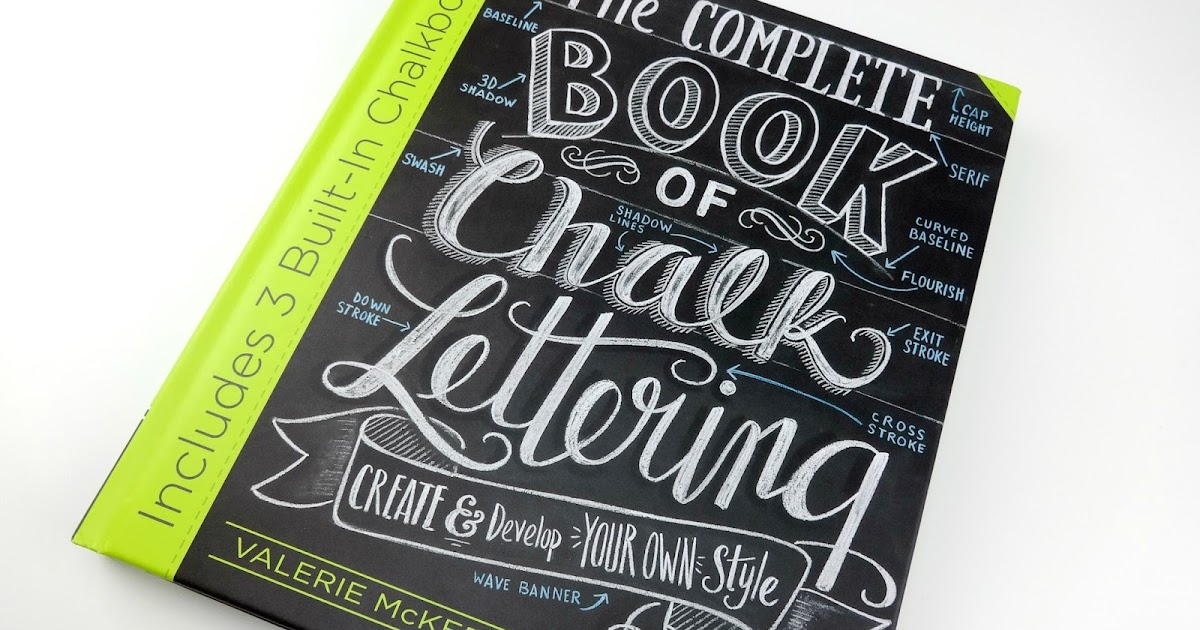 Includes 3 Built-In
The COMPLETE
BOOK
OF
Chalk
Lettering
CREATE & Develop YOUR OWN Style
VALERIE
BASELINE
3D
SHADOW
SWASH
SHADOW
LINES
DOWN
STROKE
CAP
HEIGHT
SERIF
CURVED
BASELINE
FLOURISH
EXIT
STROKE
CROSS
STROKE
WAVE BANNER